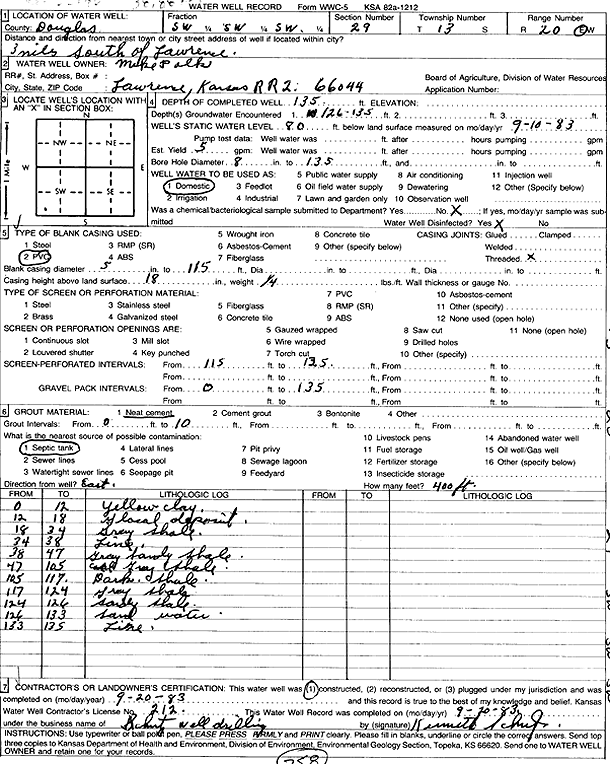 WATER WELL RECORD Form WWC-5 KSA 82a-1212
1 LOCATION OF WATER WELL: Fraction Section Number Township Number Range Number
County: Douglas SW ¼ SW ¼ SW ¼ 29 T 13 S R 20 E/W
Distance and direction from nearest town or city street address of well if located within city?
3 mile South of Lawrence.
2 WATER WELL OWNER: Mike
RR#, St. Address, Box # : Board of Agriculture, Division of Water Resources
City, State, ZIP Code : Lawrence, Kansas RR2: 66044 Application Number:
3 LOCATE WELL'S LOCATION WITH AN "X" IN SECTION BOX:
N
NW NE
W E
SW SE
S
1 Mile
4 DEPTH OF COMPLETED WELL 135 ft. ELEVATION:
Depth(s) Groundwater Encountered 1. 126-135 ft. 2. ft. 3. ft.
WELL'S STATIC WATER LEVEL 80 ft. below land surface measured on mo/day/yr 9-10-83
Pump test data: Well water was ft. after hours pumping gpm
Est. Yield 5 gpm: Well water was ft. after hours pumping gpm
Bore Hole Diameter 8 in. to 135 ft., and in. to ft.
WELL WATER TO BE USED AS: 5 Public water supply 8 Air conditioning 11 Injection well
1 Domestic 3 Feedlot 6 Oil field water supply 9 Dewatering 12 Other (Specify below)
2 Irrigation 4 Industrial 7 Lawn and garden only 10 Observation well
Was a chemical/bacteriological sample submitted to Department? Yes No X ; If yes, mo/day/yr sample was sub-
mitted Water Well Disinfected? Yes X No
5 TYPE OF BLANK CASING USED: 5 Wrought iron 8 Concrete tile CASING JOINTS: Glued Clamped
1 Steel 3 RMP (SR) 6 Asbestos-Cement 9 Other (specify below) Welded
2 PVC 4 ABS 7 Fiberglass Threaded X
Blank casing diameter 5 in. to 115 ft., Dia in. to ft., Dia in. to ft.
Casing height above land surface 18 in., weight lbs./ft. Wall thickness or gauge No.
TYPE OF SCREEN OR PERFORATION MATERIAL: 7 PVC 10 Asbestos-cement
1 Steel 3 Stainless steel 5 Fiberglass 8 RMP (SR) 11 Other (specify)
2 Brass 4 Galvanized steel 6 Concrete tile 9 ABS 12 None used (open hole)
SCREEN OR PERFORATION OPENINGS ARE: 5 Gauzed wrapped 8 Saw cut 11 None (open hole)
1 Continuous slot 3 Mill slot 6 Wire wrapped 9 Drilled holes
2 Louvered shutter 4 Key punched 7 Torch cut 10 Other (specify)
SCREEN-PERFORATED INTERVALS: From 115 ft. to 135 ft., From ft. to ft.
From ft. to ft., From ft. to ft.
GRAVEL PACK INTERVALS: From 0 ft. to 135 ft., From ft. to ft.
From ft. to ft., From ft. to ft.
6 GROUT MATERIAL: 1 Neat cement 2 Cement grout 3 Bentonite 4 Other
Grout Intervals: From 0 ft. to 10 ft., From ft. to ft., From ft. to ft.
What is the nearest source of possible contamination: 10 Livestock pens 14 Abandoned water well
1 Septic tank 4 Lateral lines 7 Pit privy 11 Fuel storage 15 Oil well/Gas well
2 Sewer lines 5 Cess pool 8 Sewage lagoon 12 Fertilizer storage 16 Other (specify below)
3 Watertight sewer lines 6 Seepage pit 9 Feedyard 13 Insecticide storage
Direction from well? East. How many feet? 400 ft.
FROM TO LITHOLOGIC LOG FROM TO LITHOLOGIC LOG
0 12 Yellow clay.
12 18 Glacal deposint.
18 34 Gray Shale.
34 38 Lime.
38 47 Gray Sandy Shale.
47 105 Gray Shale.
105 117. Dark Shale.
117 124 Gray Shale
124 126 Sandy Shale.
126 133 Sand water.
133 135 Lime.
7 CONTRACTOR'S OR LANDOWNER'S CERTIFICATION: This water well was (1) constructed, (2) reconstructed, or (3) plugged under my jurisdiction and was
completed on (mo/day/year) 9-20-83 and this record is true to the best of my knowledge and belief. Kansas
Water Well Contractor's License No. 212. This Water Well Record was completed on (mo/day/yr) 9-20-83
under the business name of well drilling by (signature) Kenneth
INSTRUCTIONS: Use typewriter or ball point pen, PLEASE PRESS FIRMLY and PRINT clearly. Please fill in blanks, underline or circle the correct answers. Send top
three copies to Kansas Department of Health and Environment, Division of Environment, Environmental Geology Section, Topeka, KS 66620. Send one to WATER WELL
OWNER and retain one for your records.